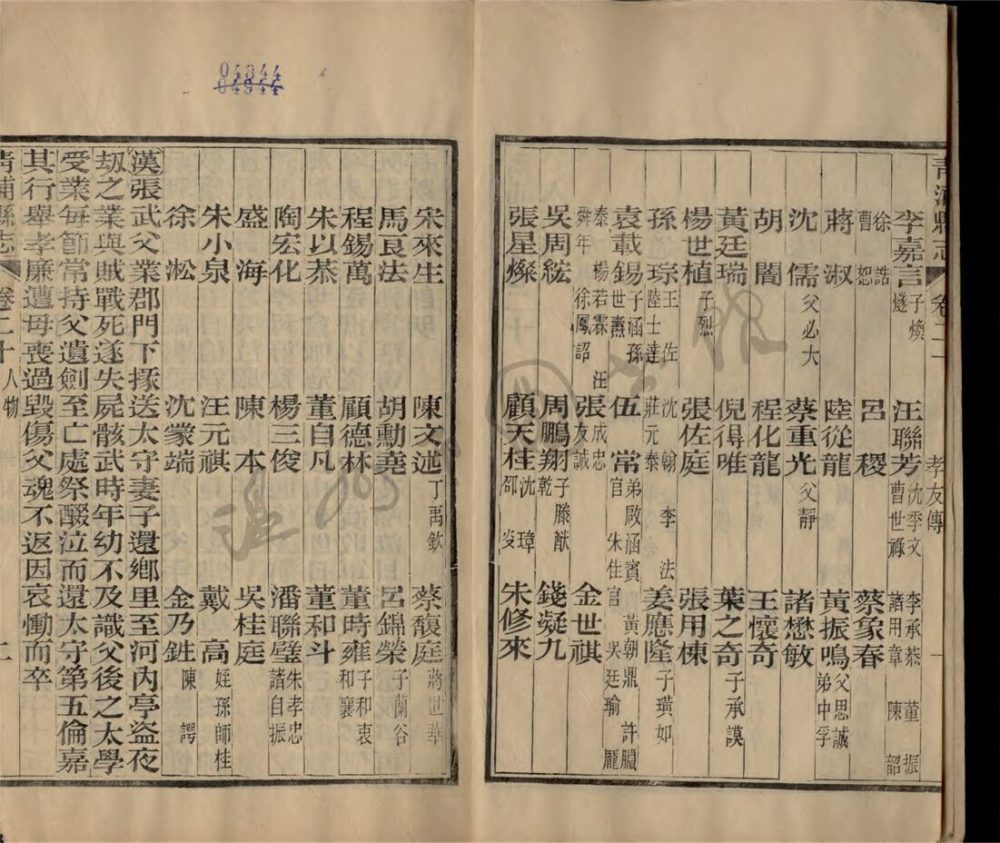 04844
04944
青浦縣志 卷二十 孝友傳 一
李嘉言 子煥 燧 汪聯芳 沈季文 曹世祿 李承恭 諸用章 董振 陳韶
徐誥 曹恕 呂稷 蔡象春
蔣淑 陸從龍 黃振鳴 父思誠 弟中孚
沈儒 父必大 蔡重光 父靜 諸懋敏
胡闇 程化龍 王懷奇
黃廷瑞 倪得唯 葉之奇 子承謨
楊世植 子烈 張佐庭 張用棟
孫琮 王佐 陸士達 沈翰 莊元泰 李法 姜應隆 子璜如
袁載錫 子涵孫 世燾 伍常 弟啟涵賓 官朱生官 黃朝鼎 吳廷瑜 許臘 龐
泰舜年 楊若霖 徐鳳詔 汪成忠 張友誠 金世祺
吳周絃 周鵬翔 子滕猷 乾 錢凝九
張星燦 顧天桂 沈璋 邵炎 朱修來
宋來生 陳文述 丁禹欽 蔡馥庭 蔣世華
馬良法 胡勳堯 呂錦榮 子蘭谷
程錫萬 顧德林 董時雍 子和衷 和襄
朱以恭 董自凡 董和斗
陶宏化 楊三俊 潘聯璧 朱孝忠 諸自振
盛海 陳本 吳桂庭
朱小泉 汪元祺 戴高 姪孫師桂
徐淞 沈蒙端 金乃甡 陳諤
漢張武父業郡門下掾送太守妻子還鄉里至河內亭盜夜
劫之業與賊戰死遂失屍骸武時年幼不及識父後之太學
受業每節常持父遺劍至亡處祭醊泣而還太守第五倫嘉
其行舉孝廉遭母喪過毀傷父魂不返因哀慟而卒
青浦縣志 卷二十 人物 二